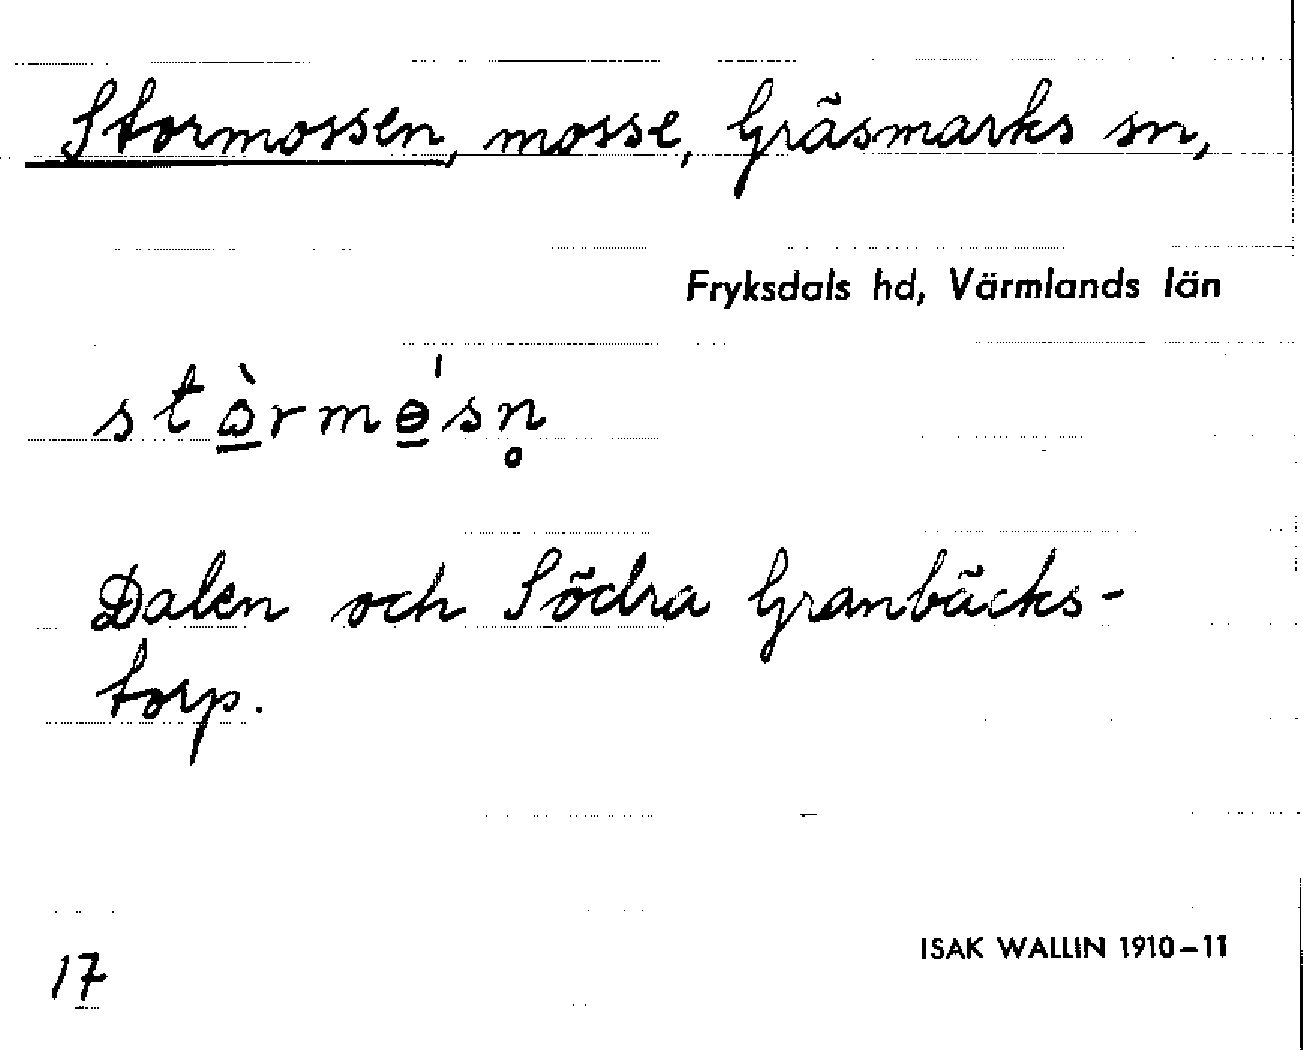 Stormossen, mosse, Gräsmarks sn,
Fryksdals hd, Värmlands län
stɔ̲̀rmɵ̲́sn̥
Dalen och Södra Granbäcks-
torp.
17
ISAK WALLIN 1910–11